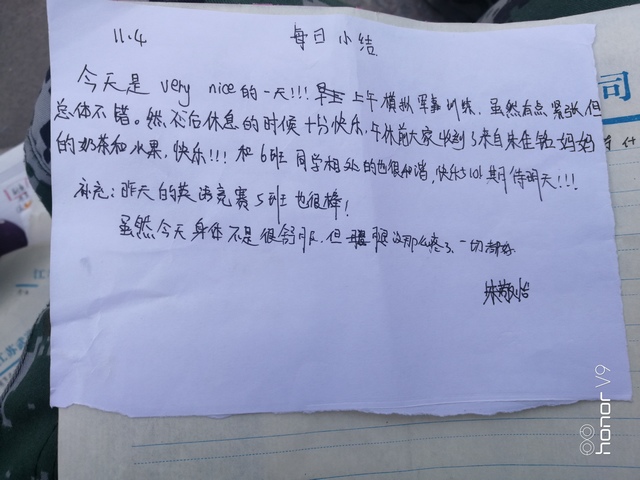 11.4 每日小结
今天是 very nice的一天!!! 上午模拟军事训练,虽然有点紧张,但
总体不错。然后休息的时候十分快乐,午休前大家收到了来自朱佳铭妈妈
的奶茶和水果,快乐!!! 和6班同学相处的也很和谐,快乐5101期待明天!!!
补充:昨天的英语竞赛5班也很棒!
虽然今天身体不是很舒服,但腿没那么疼了,一切都好
司
honor V9